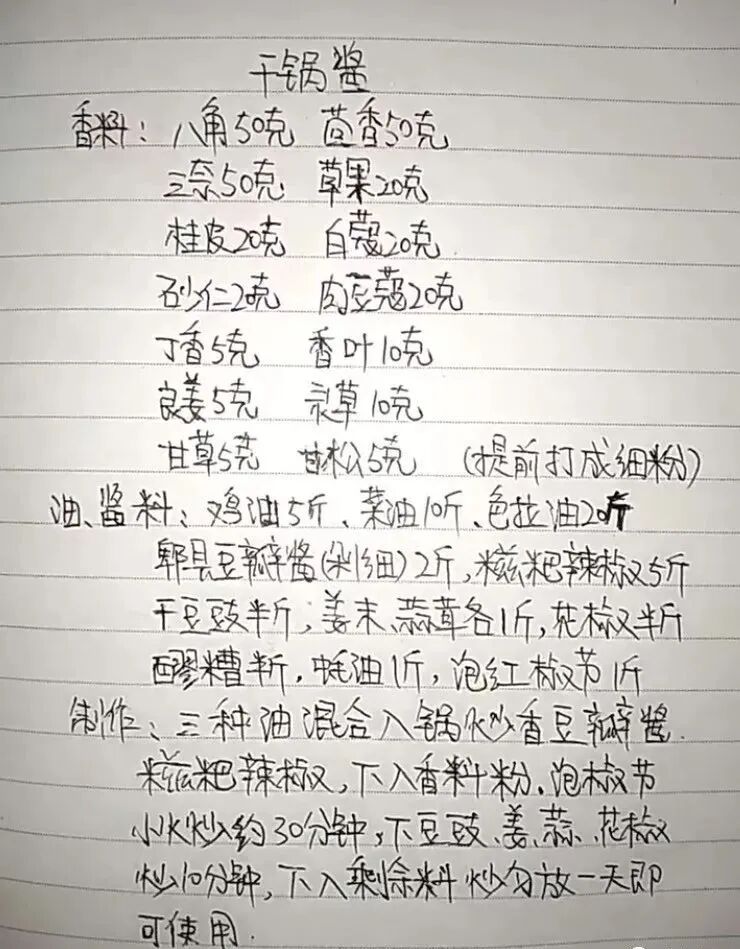 干锅酱
香料：八角50克 茴香50克
三奈50克 草果20克
桂皮20克 白蔻20克
砂仁20克 肉豆蔻20克
丁香5克 香叶10克
良姜5克 灵草10克
甘草5克 甘松5克 （提前打成细粉）
油、酱料：鸡油5斤、菜油10斤、色拉油20斤
郫县豆瓣酱（剁细）2斤，糍粑辣椒5斤
干豆豉半斤，姜末、蒜茸各1斤，花椒半斤
醪糟半斤，蚝油1斤，泡红椒节1斤
制作：三种油混合入锅炒香豆瓣酱.
糍粑辣椒，下入香料粉、泡椒节
小火炒约30分钟，下豆豉、姜、蒜、花椒
炒10分钟，下入剩余料炒匀放一天即
可使用.